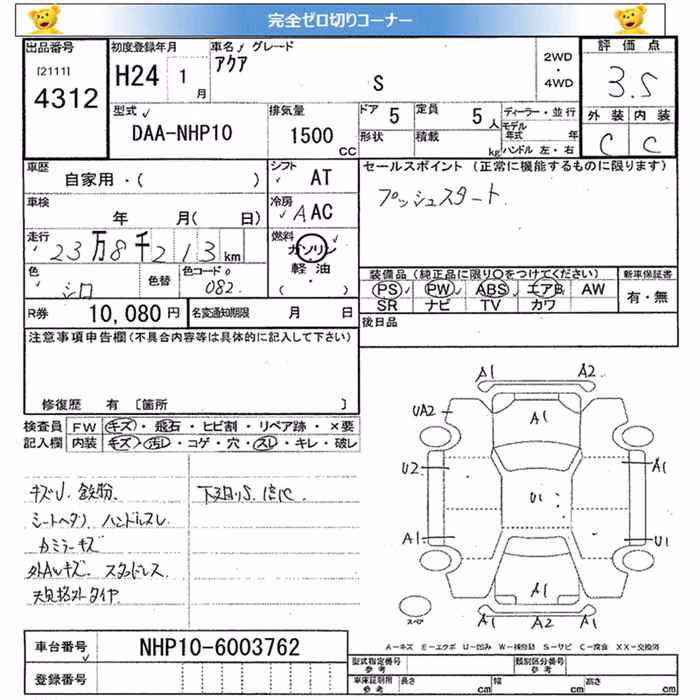 完全ゼロ切りコーナー
出品番号
[2111]
4312
初度登録年月
H24 1月
車名 グレード
アクア
S
2WD
・
4WD
評価点
3.5
外装 内装
C C
型式
DAA-NHP10
排気量
1500 CC
ドア 5
形状
定員 5人
積載 kg
ディーラー・並行
モデル年式 年
ハンドル 左・右
車歴
自家用・( )
車検
年 月( 日)
走行
23万8千213km
色
シロ
色替
色コード
082
シフト
AT
冷房
AAC
燃料
ガソリン
軽油
( )
セールスポイント (正常に機能するものに限ります)
プッシュスタート
装備品(純正品に限り○をつけてください)
PS PW ABS エアB AW
SR ナビ TV カワ
新車保証書
有・無
R券 10,080円
名変通知期限 月 日
後日品
注意事項申告欄(不具合内容等は具体的に記入して下さい)
修復歴 有 〔箇所 〕
検査員記入欄
FW キズ・飛石・ヒビ割・リペア跡・×要
内装 キズ・汚レ・コゲ・穴・スレ・キレ・破レ
キズU 鉄粉
シートヘタリ ハンドルスレ
カミラーキズ
外AWキズ スタッドレス
規格外タイヤ
下廻りS
A1 A2
UA2 A1
U2 A1
U1
A1 U1
A1
A2 A2
スペア
A-キズ E-エクボ U-凹み W-補修跡 S-サビ C-腐食 XX-交換済
車台番号 NHP10-6003762
登録番号
型式指定番号 参考
類別区分番号 参考
車庫証明用 参考
長さ cm 幅 cm 高さ cm